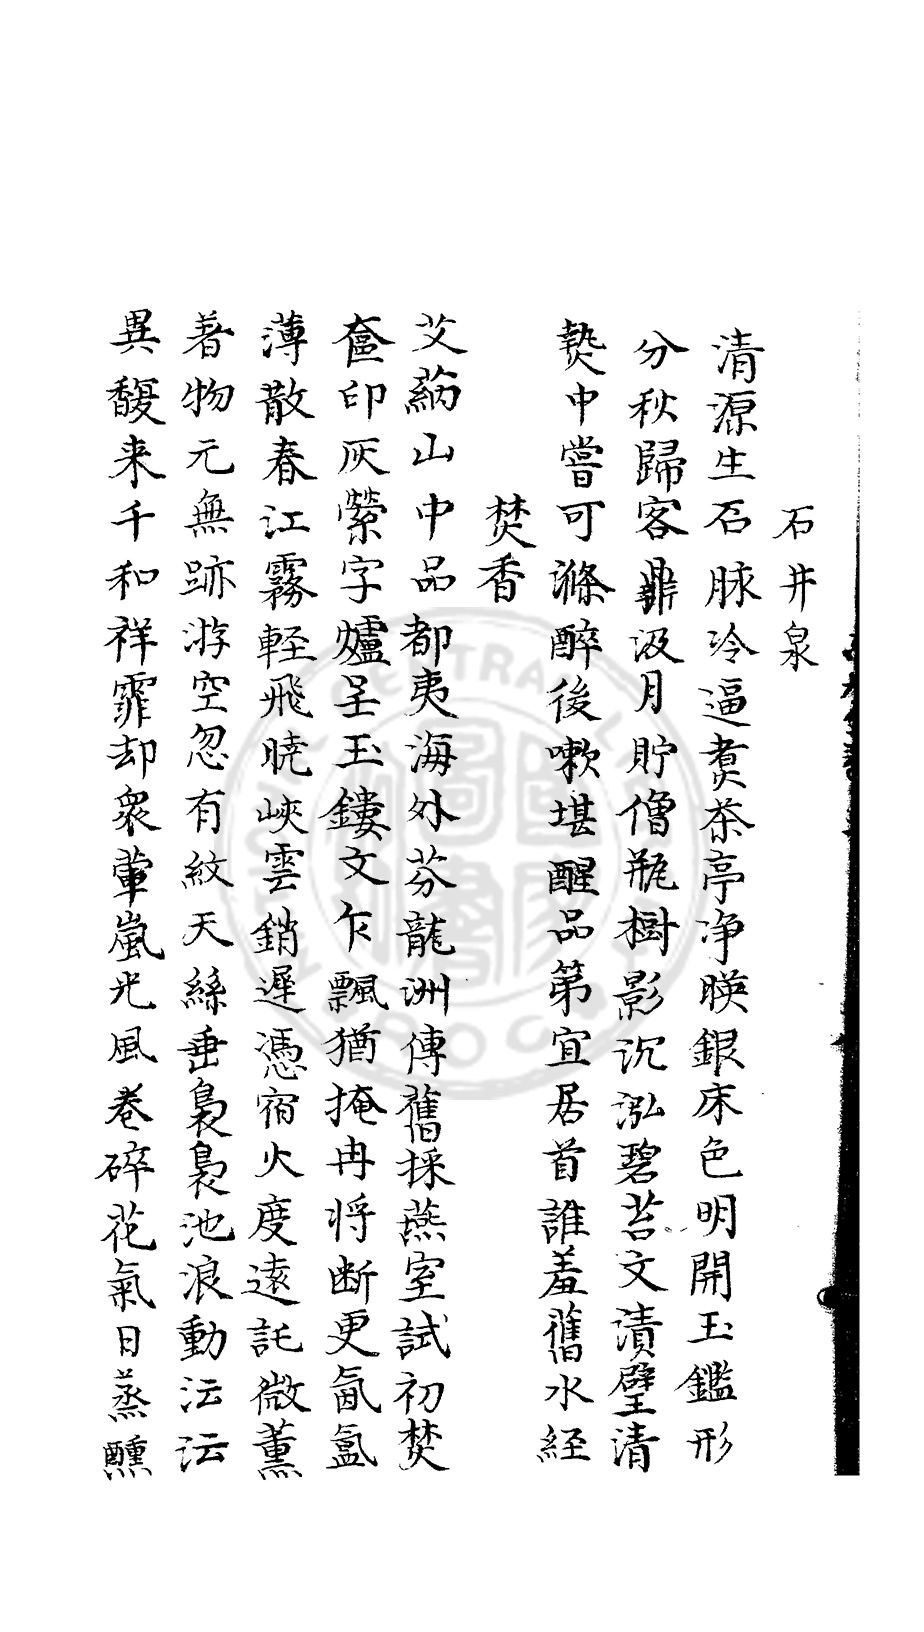 石井泉
清源生石脉冷逼煑茶亭净暎銀床色明開玉鑑形
分秋歸客鼎汲月貯僧瓶樹影沉泓碧苔文漬壁清
𤍠中嘗可滌醉後嗽堪醒品第宜居首誰羞舊水経
焚香
艾蒳山中品都夷海外芬龍洲傳舊採燕室試初焚
奩印灰縈字爐呈玉鏤文乍飄猶掩冉将断更氤氲
薄散春江霧軽飛暁峽雲銷遲憑宿火度遠託微薰
着物元無跡游空忽有紋天絲垂裊裊池浪動沄沄
異馥来千和祥霏却衆葷嵐光風卷碎花氣日蒸醺